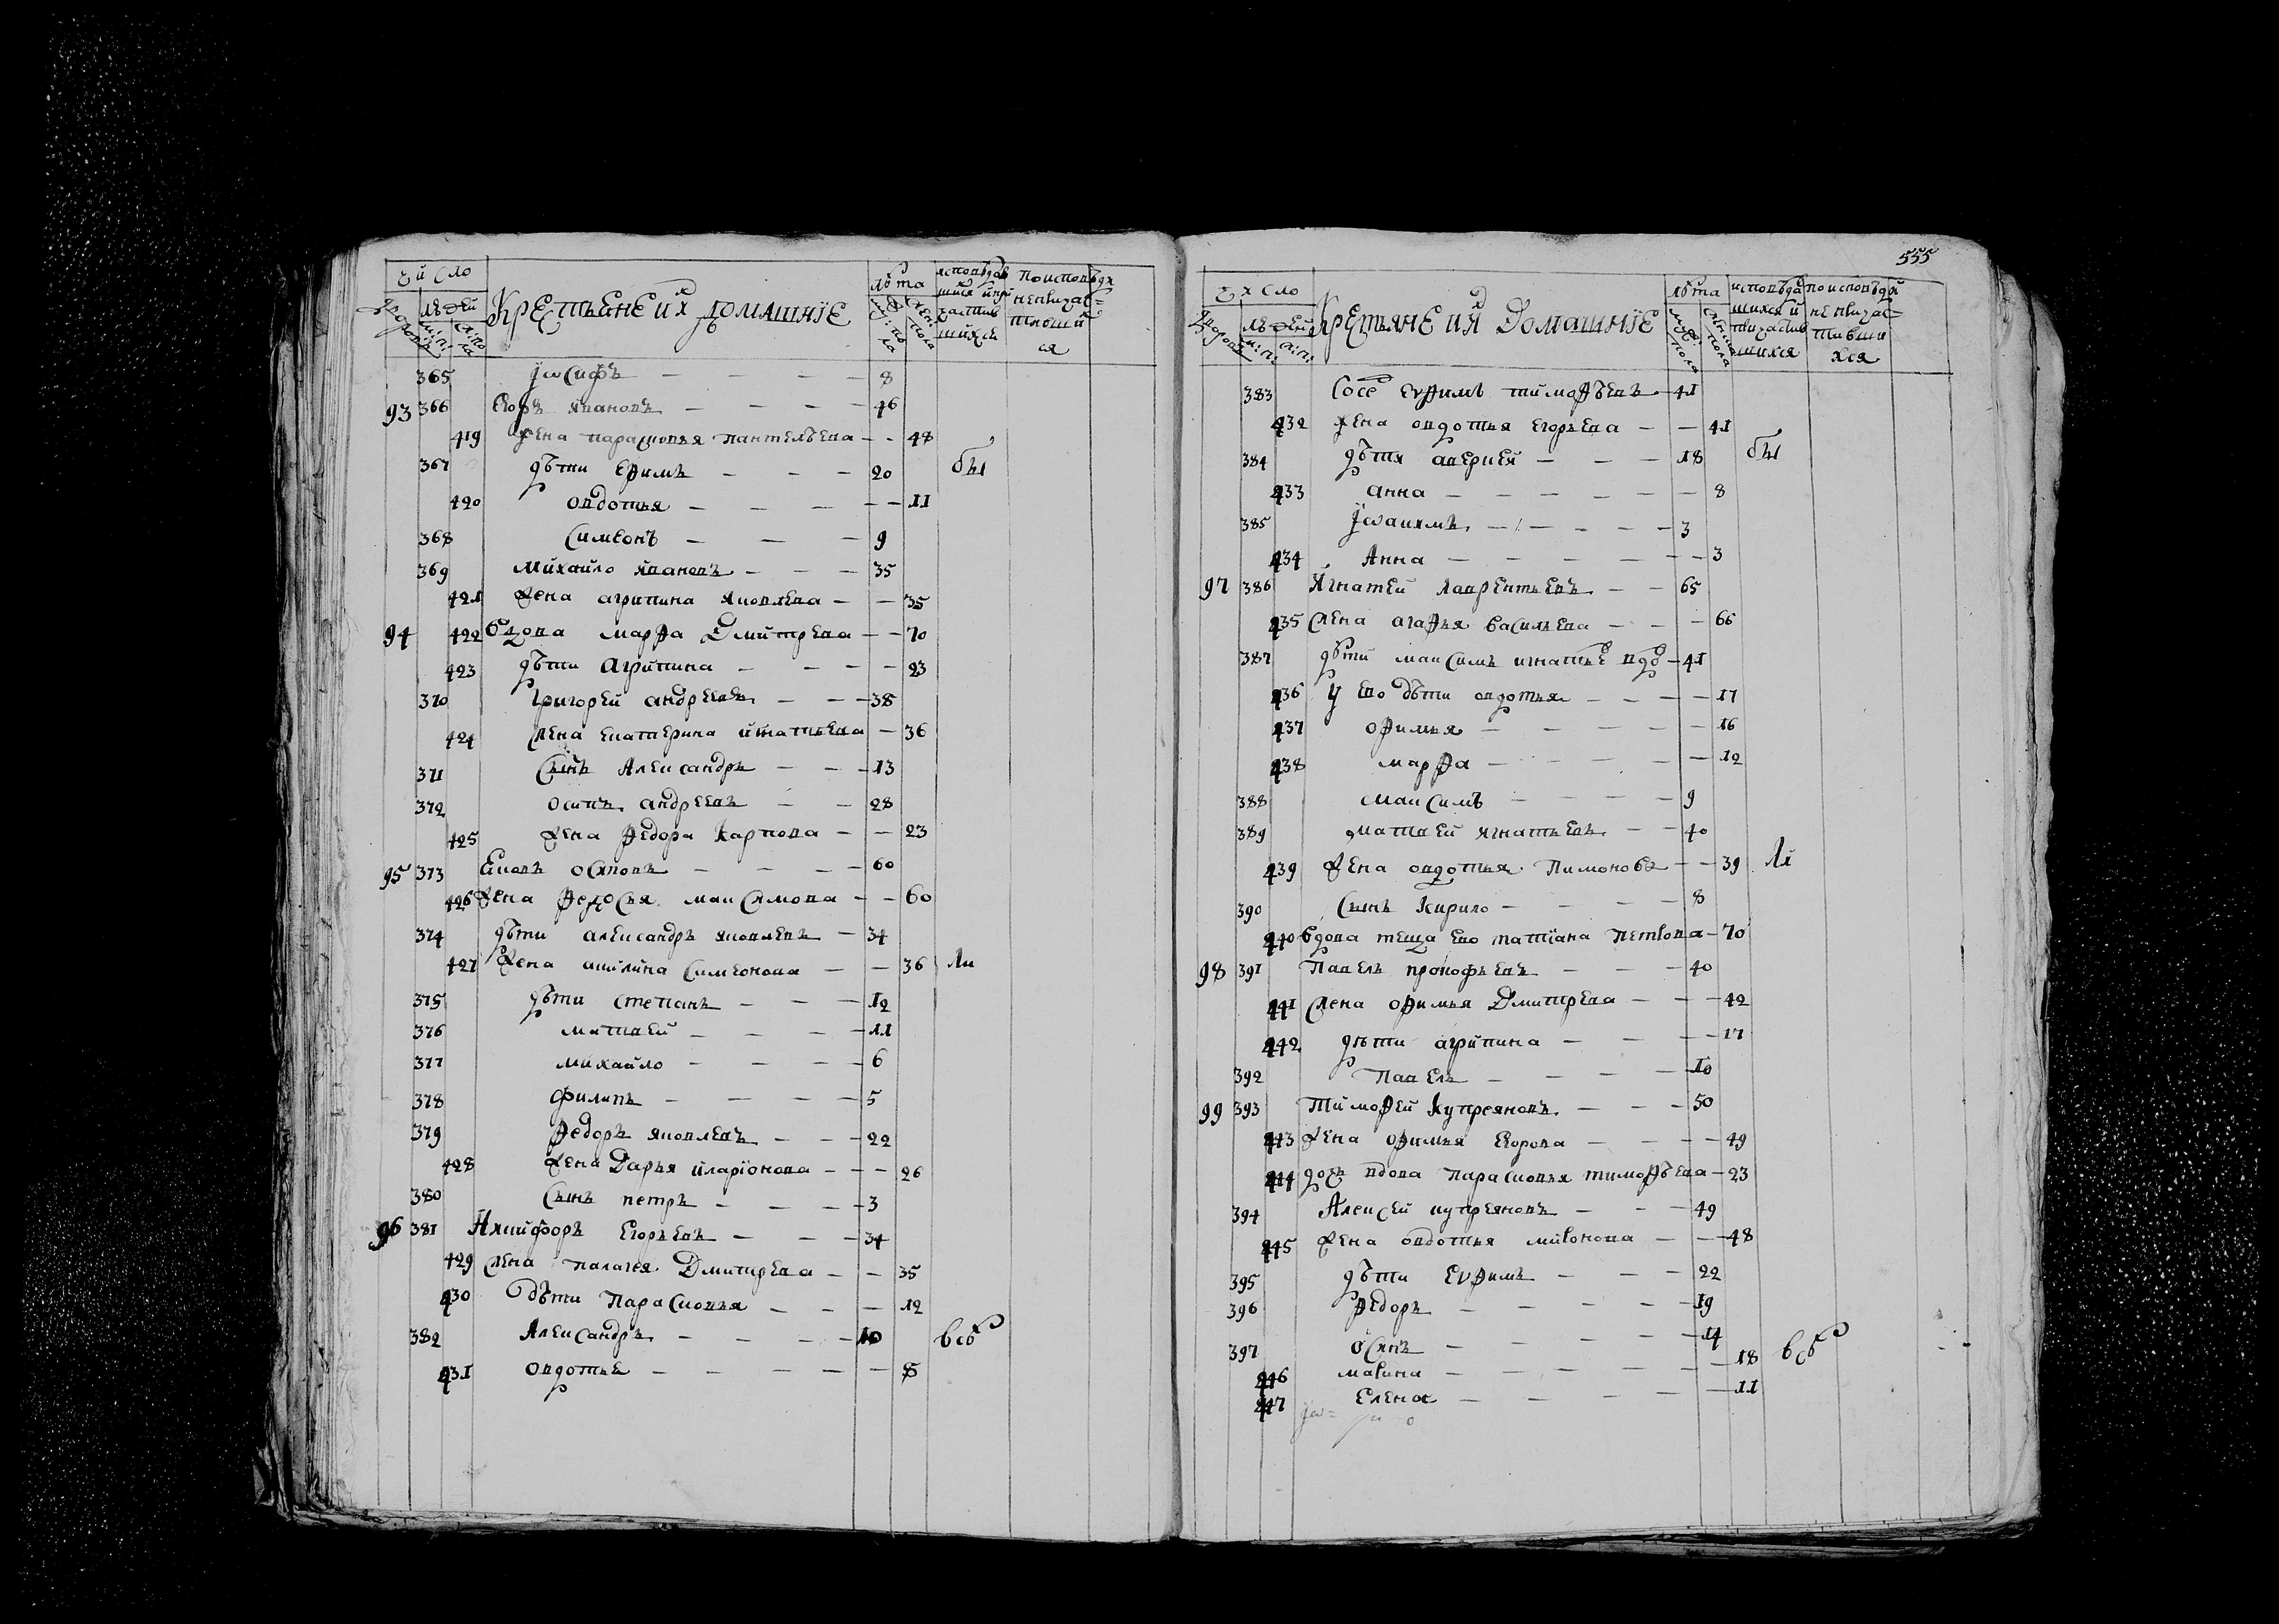 Число
людей
Крестьяне и их домашние
лѣта
365 Іѡсифъ — — — — 8
93 366 Егоръ Ивановъ — — — — 46
419 жена парасковья пантелѣева — - 48
367 дѣти Ефимъ — — — 20 бы
420 овдотья — — — - - 11
368 Симеонъ — — — 9
369 Михайло Ивановъ — — — 35
421 жена агрипина Яковлева — — 35
94 422 Вдова марѳа Дмитрева — — 70
423 дѣти Агрипина — — — — 23
370 григорей андреевъ — — — 38
424 жена екатерина игнатьева — 36
371 Сынъ Александръ — — — 13
372 осипъ андреевъ — — 28
425 жена Ѳедора Карпова — — 23
95 373 Яковъ осиповъ — — — 60
426 жена Ѳедосья максимова — — 60
374 дѣти александръ яковлевъ — 34
427 жена акилина симеонова — — 36 ли
375 дѣти степанъ — — — 12
376 матвей — — — — 11
377 михайло — — — — 6
378 филипъ — — — — 5
379 Ѳедоръ яковлевъ — — — 22
428 жена Дарья иларіонова — — — 26
380 Сынъ петръ — — — — 3
96 381 Никифоръ Егорьевъ — — — 34
429 жена палагея Дмитрева — — 35
430 дѣти Парасковья — — — 12
382 Александръ — — — — 10 всѣ
431 овдотья — — — — — 8
555
Число
людей
Крестьяне и их Домашніе
лѣта
383 Сосе Еѵѳимъ тимоѳѣевъ — 41
432 жена овдотья егорьева — — 41
384 дѣти аверкей — — — 18 бы
433 анна — — — — — — 8
385 Іѡакимъ — — — — — 3
434 Анна — — — — — — 3
97 386 Игнатей лаврентьевъ — — 65
435 жена агаѳья васильева — — — 66
387 дѣти максимъ игнатье вдо — 41
436 у ево дѣти овдотья — — — — 17
437 оѳимья — — — — — 16
438 марѳа — — — — — 12
388 максимъ — — — — 9
389 матвей игнатьевъ — — 40
439 жена овдотья Пимонова — — 39 ли
390 Сынъ Кирило — — — — 8
440 вдова теща ево татіана петрова — 70
98 391 Павелъ прокофьевъ — — — 40
441 жена оѳимья Дмитрева — — — 42
442 дѣти агрипина — — — — 17
392 Павелъ — — — — 10
99 393 Тимоѳей Купреяновъ — — — 50
443 жена оѳимья Егорова — — — — 49
444 дочь вдова парасковья тимоѳѣева — 23
394 Алексей купреяновъ — — — 49
445 жена овдотья миронова — — 48
395 дѣти Еѵѳимъ — — — 22
396 Ѳедоръ — — — — — 19
397 осипъ — — — — — 14
446 марина — — — — — — 18 всѣ
447 Елена — — — — — 11